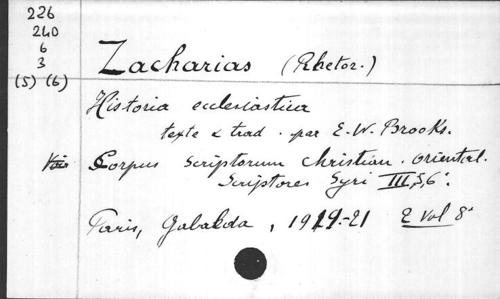 226
240
6
3
(5) (6)
Zacharias (Rhetor.)
Historia ecclesiastica
texte & trad. par E.-W. Brooks.
Voir Corpus scriptorum christian. oriental.
Scriptores Syri III, 5, 6.
Paris, Gabalda, 1919.-21 2 Vol 8°